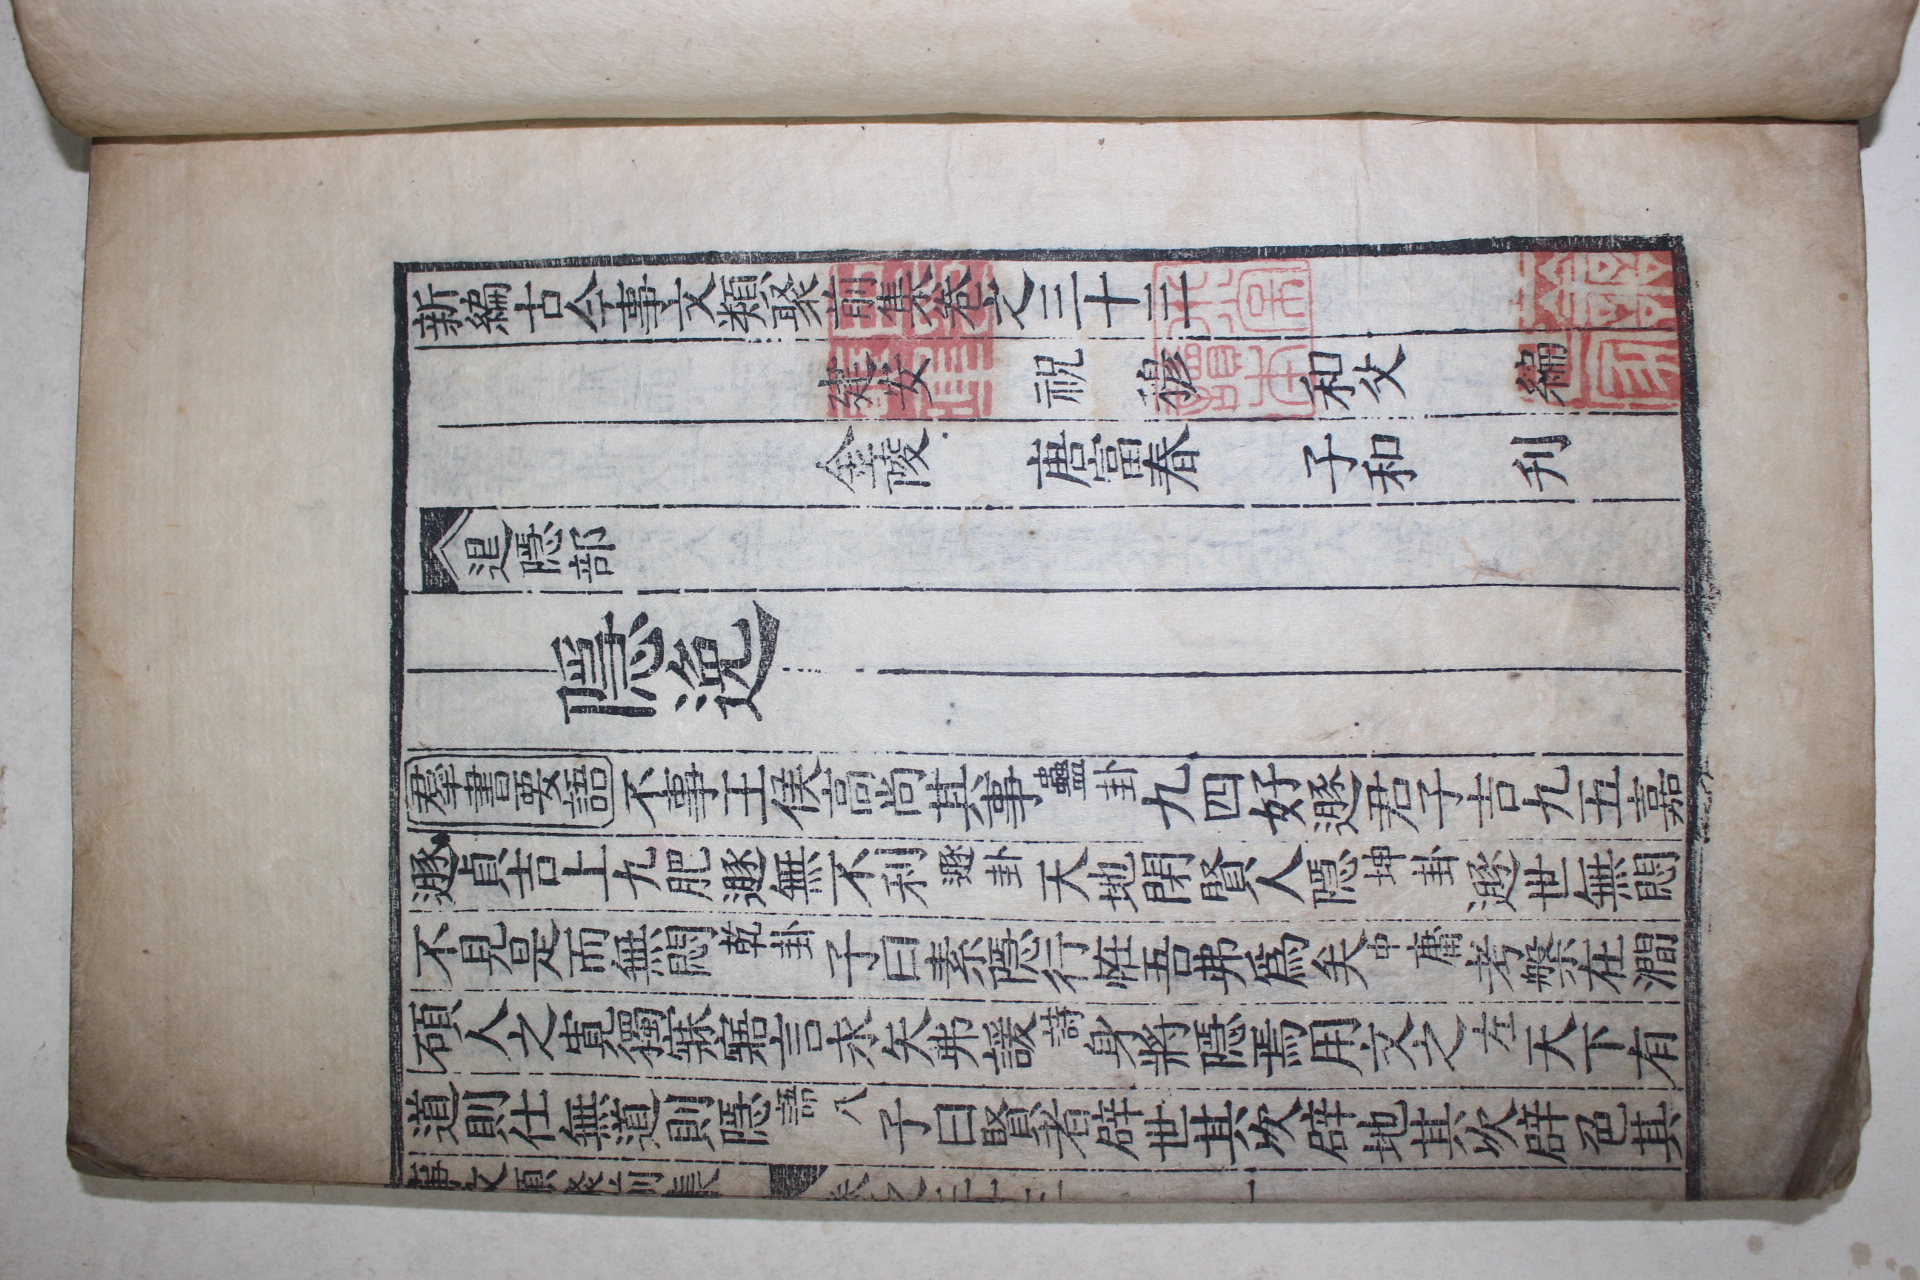 新編古今事文類聚前集卷之三十三
建安 祝 穆 和父 編
金陵 唐富春 子和 刋
退隱部
隱逸
群書要語 不事王侯高尚其事蠱卦九四好遯君子吉九五嘉
遯貞吉上九肥遯無不利遯卦天地閉賢人隱坤卦遯世無悶
不見是而無悶乾卦子曰素隱行怪吾弗爲矣中庸考槃在澗
碩人之寬獨寐寤言永矢弗諼詩身將隱焉用文之左天下有
道則仕無道則隱語八子曰賢者辟世其次辟地其次辟色其
事文類聚前集 卷之三十三 一